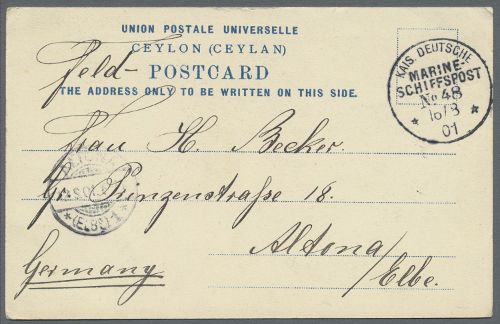 UNION POSTALE UNIVERSELLE
CEYLON (CEYLAN)
Feld-
POSTCARD
THE ADDRESS ONLY TO BE WRITTEN ON THIS SIDE.
KAIS. DEUTSCHE
MARINE-
SCHIFFSPOST
No 48
16/8
01
Frau H. Becker
Gr. Prinzenstraße 18.
Altona
/Elbe.
Germany
ALTONA
(ELBE) 1